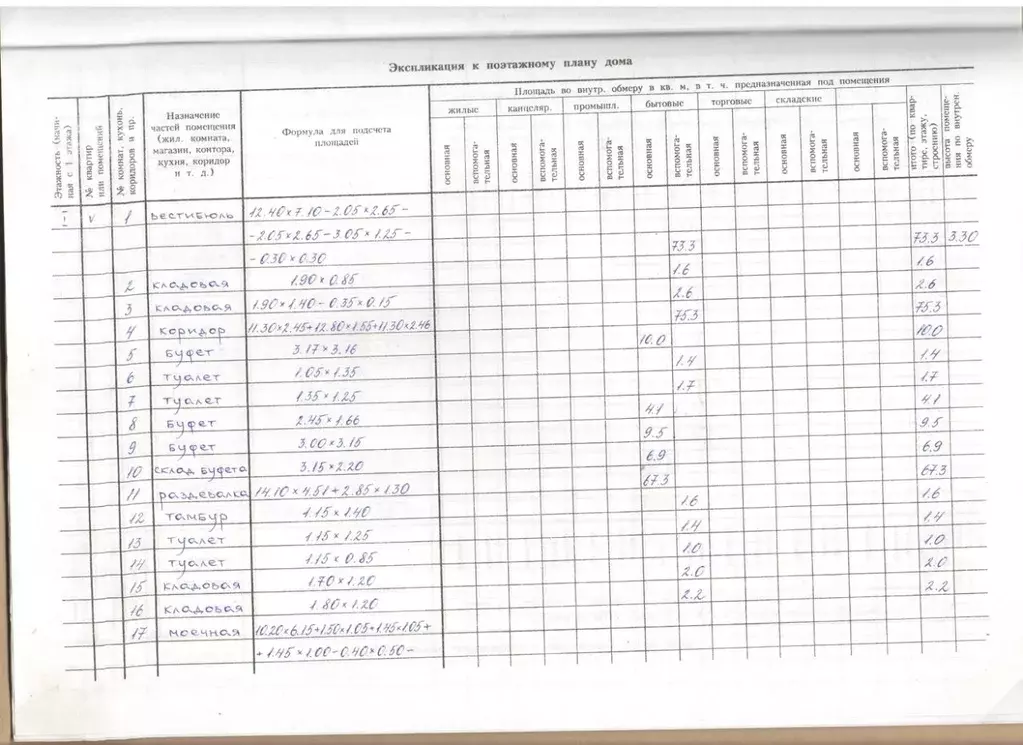 Экспликация к поэтажному плану дома
Этажность (начиная с 1 этажа)
№ квартир или помещений
№ комнат, кухонь, коридоров и пр.
Назначение
частей помещения
(жил. комната,
магазин, контора,
кухня, коридор
и т. д.)
Формула для подсчета
площадей
Площадь во внутр. обмеру в кв. м, в т. ч. предназначенная под помещения
жилые канцеляр. промышл. бытовые торговые складские
основная вспомога-тельная основная вспомога-тельная основная вспомога-тельная основная вспомога-тельная основная вспомога-тельная основная вспомога-тельная основная вспомога-тельная
итого (по квартире, этажу, строению)
высота помещения по внутрен. обмеру
V 1 вестибюль 12.40×7.10-2.05×2.65-
-2.05×2.65-3.05×1.25-
-0.30×0.30 73.3 73.3 3.30
2 кладовая 1.90×0.85 1.6 1.6
3 кладовая 1.90×1.40-0.35×0.15 2.6 2.6
4 коридор 11.30×2.45+12.80×1.55+11.30×2.46 75.3 75.3
5 буфет 3.17×3.16 10.0 10.0
6 туалет 1.05×1.35 1.4 1.4
7 туалет 1.35×1.25 1.7 1.7
8 буфет 2.45×1.66 4.1 4.1
9 буфет 3.00×3.15 9.5 9.5
10 склад буфета 3.15×2.20 6.9 6.9
11 раздевалка 14.10×4.51+2.85×1.30 67.3 67.3
12 тамбур 1.15×1.40 1.6 1.6
13 туалет 1.15×1.25 1.4 1.4
14 туалет 1.15×0.85 1.0 1.0
15 кладовая 1.70×1.20 2.0 2.0
16 кладовая 1.80×1.20 2.2 2.2
17 моечная 10.20×6.15+1.50×1.05+1.45×1.05+
+1.45×1.00-0.40×0.50-